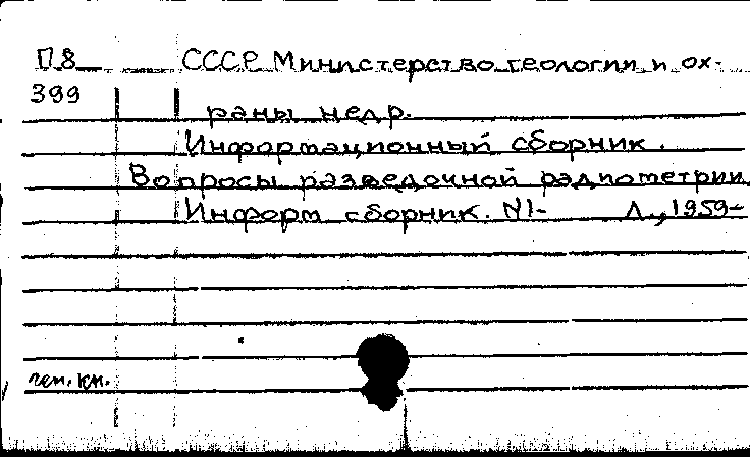 П8 СССР Министерство геологии и ох-
399 раны недр.
Информационный сборник.
Вопросы разведочной радиометрии
Информ сборник. N1- Л., 1959-
ген. кн.